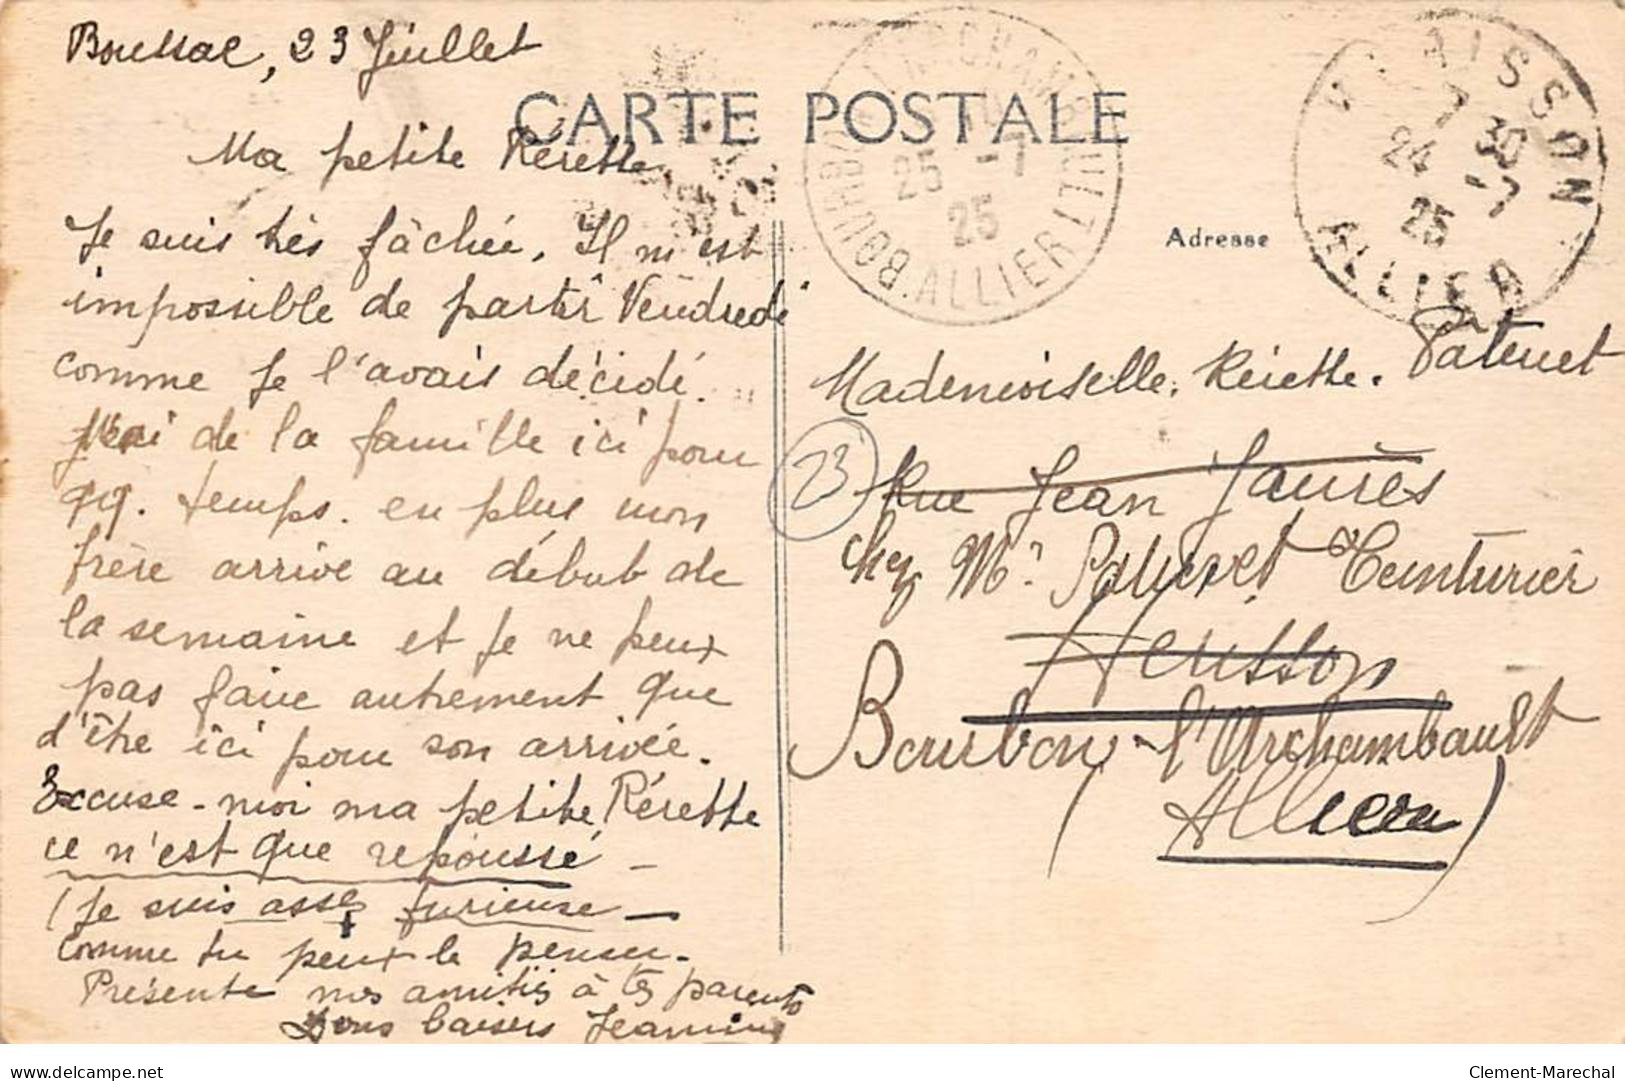 Boussac, 23 Juillet
CARTE POSTALE
Ma petite Rérette
Je suis très fâchée. Il m'est
impossible de partir Vendredi
comme je l'avais décidé.
J'ai de la famille ici pour
qq. temps. en plus mon
frère arrive au début de
la semaine et je ne peux
pas faire autrement que
d'être ici pour son arrivée.
Excuse-moi ma petite Rérette
ce n'est que repoussé -
(Je suis assez furieuse -
comme tu peux le penser.
Présente nos amitiés à tes parents
Bons baisers Jeannine
BOURBON-L'ARCHAMBAULT
25 -7
25
ALLIER
HERISSON
7 30
24 -7
25
ALLIER
Adresse
Mademoiselle. Rérette.
23
Rue Jean Jaurès
chez Mr Teinturier
Hérisson
Bourbon-l'Archambault
(Allier)
Clement-Marechal